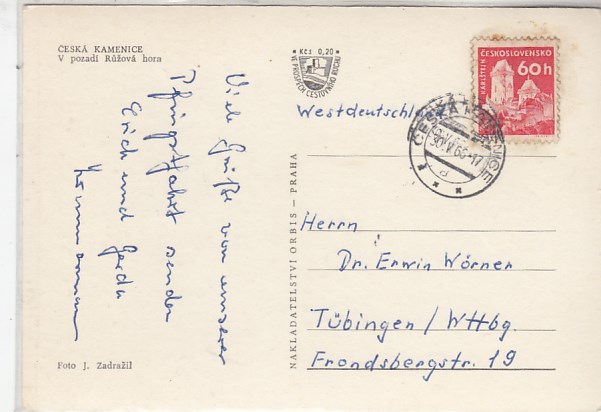 ČESKÁ KAMENICE
V pozadí Růžová hora
Viele Grüße von unserer
Pfingstfahrt senden
Erich und Gerda
Foto J. Zadražil
NAKLADATELSTVÍ ORBIS – PRAHA
Kčs 0,20
VE PROSPĚCH CESTOVNÍHO RUCHU
ČESKOSLOVENSKO
KARLŠTEJN
60h
ČESKÁ KAMENICE
30.V.66-17
d
Westdeutschland
Herrn
Dr. Erwin Wörner
Tübingen / Wttbg.
Frondsbergstr. 19